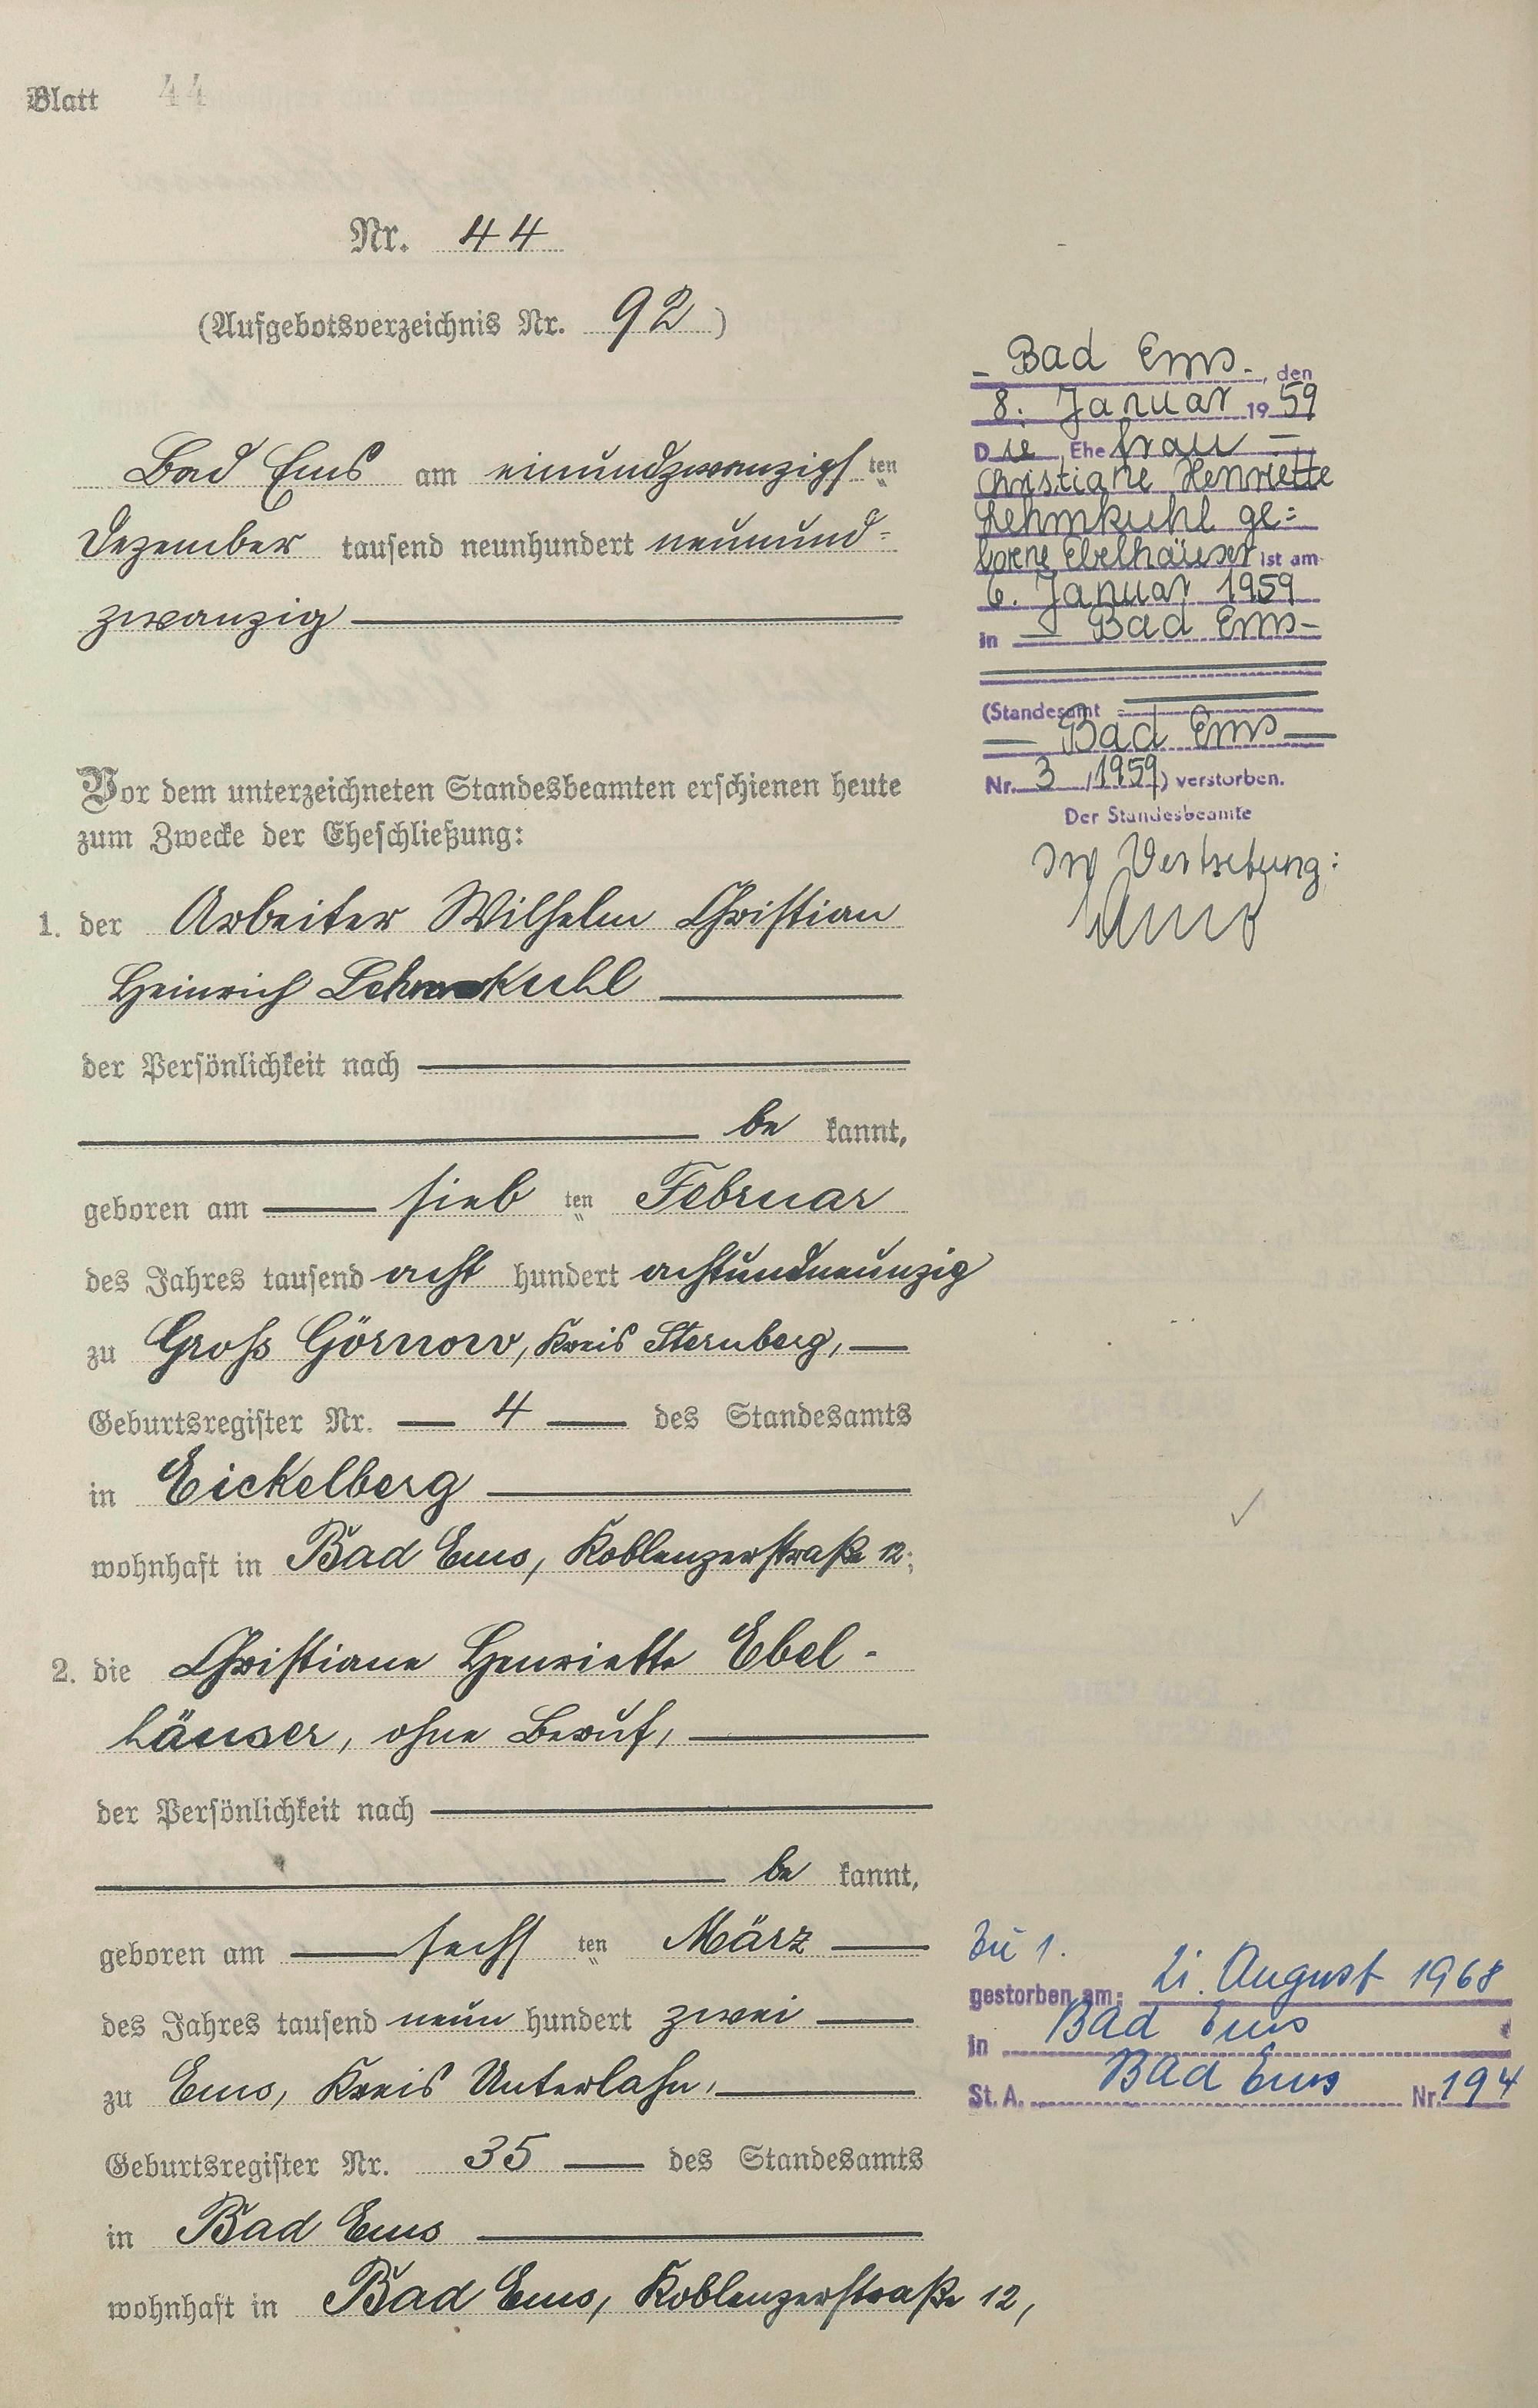 Blatt 44
Nr. 44
(Aufgebotsverzeichnis Nr. 92)
Bad Ems am einundzwanzigsten
Dezember tausend neunhundert neunund-
zwanzig
Vor dem unterzeichneten Standesbeamten erschienen heute
zum Zwecke der Eheschließung:
1. der Arbeiter Wilhelm Christian
Heinrich Lehmkuhl
der Persönlichkeit nach
be kannt,
geboren am siebten Februar
des Jahres tausend acht hundert achtundneunzig
zu Gross Görnow, Kreis Sternberg,
Geburtsregister Nr. 4 des Standesamts
in Eickelberg
wohnhaft in Bad Ems, Koblenzerstraße 12;
2. die Christiane Henriette Ebel-
häuser, ohne Beruf,
der Persönlichkeit nach
be kannt,
geboren am sechsten März
des Jahres tausend neun hundert zwei
zu Ems, Kreis Unterlahn,
Geburtsregister Nr. 35 des Standesamts
in Bad Ems
wohnhaft in Bad Ems, Koblenzerstraße 12,
- Bad Ems -, den
8. Januar 1959
Die Ehefrau -
Christiane Henriette
Lehmkuhl ge=
borene Ebelhäuser ist am
6. Januar 1959
in - Bad Ems -
(Standesamt
- Bad Ems -
Nr. 3 /1959) verstorben.
Der Standesbeamte
In Vertretung:
Zu 1.
gestorben am: 21. August 1968
in Bad Ems
St. A. Bad Ems Nr. 194